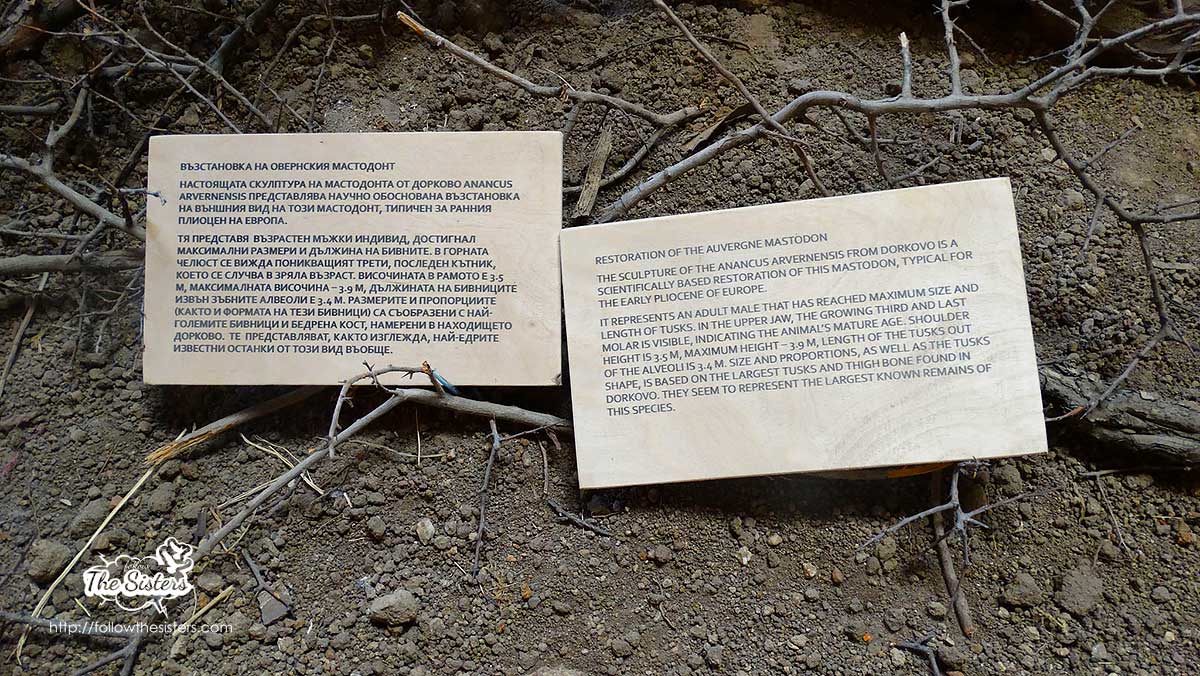 ВЪЗСТАНОВКА НА ОВЕРНСКИЯ МАСТОДОНТ
НАСТОЯЩАТА СКУЛПТУРА НА МАСТОДОНТА ОТ ДОРКОВО ANANCUS
ARVERNENSIS ПРЕДСТАВЛЯВА НАУЧНО ОБОСНОВАНА ВЪЗСТАНОВКА
НА ВЪНШНИЯ ВИД НА ТОЗИ МАСТОДОНТ, ТИПИЧЕН ЗА РАННИЯ
ПЛИОЦЕН НА ЕВРОПА.
ТЯ ПРЕДСТАВЯ ВЪЗРАСТЕН МЪЖКИ ИНДИВИД, ДОСТИГНАЛ
МАКСИМАЛНИ РАЗМЕРИ И ДЪЛЖИНА НА БИВНИТЕ. В ГОРНАТА
ЧЕЛЮСТ СЕ ВИЖДА ПОНИКВАЩИЯТ ТРЕТИ, ПОСЛЕДЕН КЪТНИК,
КОЕТО СЕ СЛУЧВА В ЗРЯЛА ВЪЗРАСТ. ВИСОЧИНАТА В РАМОТО Е 3.5
М, МАКСИМАЛНАТА ВИСОЧИНА – 3.9 М, ДЪЛЖИНАТА НА БИВНИЦИТЕ
ИЗВЪН ЗЪБНИТЕ АЛВЕОЛИ Е 3.4 М. РАЗМЕРИТЕ И ПРОПОРЦИИТЕ
(КАКТО И ФОРМАТА НА ТЕЗИ БИВНИЦИ) СА СЪОБРАЗЕНИ С НАЙ-
ГОЛЕМИТЕ БИВНИЦИ И БЕДРЕНА КОСТ, НАМЕРЕНИ В НАХОДИЩЕТО
ДОРКОВО. ТЕ ПРЕДСТАВЛЯВАТ, КАКТО ИЗГЛЕЖДА, НАЙ-ЕДРИТЕ
ИЗВЕСТНИ ОСТАНКИ ОТ ТОЗИ ВИД ВЪОБЩЕ.
RESTORATION OF THE AUVERGNE MASTODON
THE SCULPTURE OF THE ANANCUS ARVERNENSIS FROM DORKOVO IS A
SCIENTIFICALLY BASED RESTORATION OF THIS MASTODON, TYPICAL FOR
THE EARLY PLIOCENE OF EUROPE.
IT REPRESENTS AN ADULT MALE THAT HAS REACHED MAXIMUM SIZE AND
LENGTH OF TUSKS. IN THE UPPER JAW, THE GROWING THIRD AND LAST
MOLAR IS VISIBLE, INDICATING THE ANIMAL'S MATURE AGE. SHOULDER
HEIGHT IS 3.5 M, MAXIMUM HEIGHT – 3.9 M, LENGTH OF THE TUSKS OUT
OF THE ALVEOLI IS 3.4 M. SIZE AND PROPORTIONS, AS WELL AS THE TUSKS
SHAPE, IS BASED ON THE LARGEST TUSKS AND THIGH BONE FOUND IN
DORKOVO. THEY SEEM TO REPRESENT THE LARGEST KNOWN REMAINS OF
THIS SPECIES.
follow
The Sisters
http://followthesisters.com